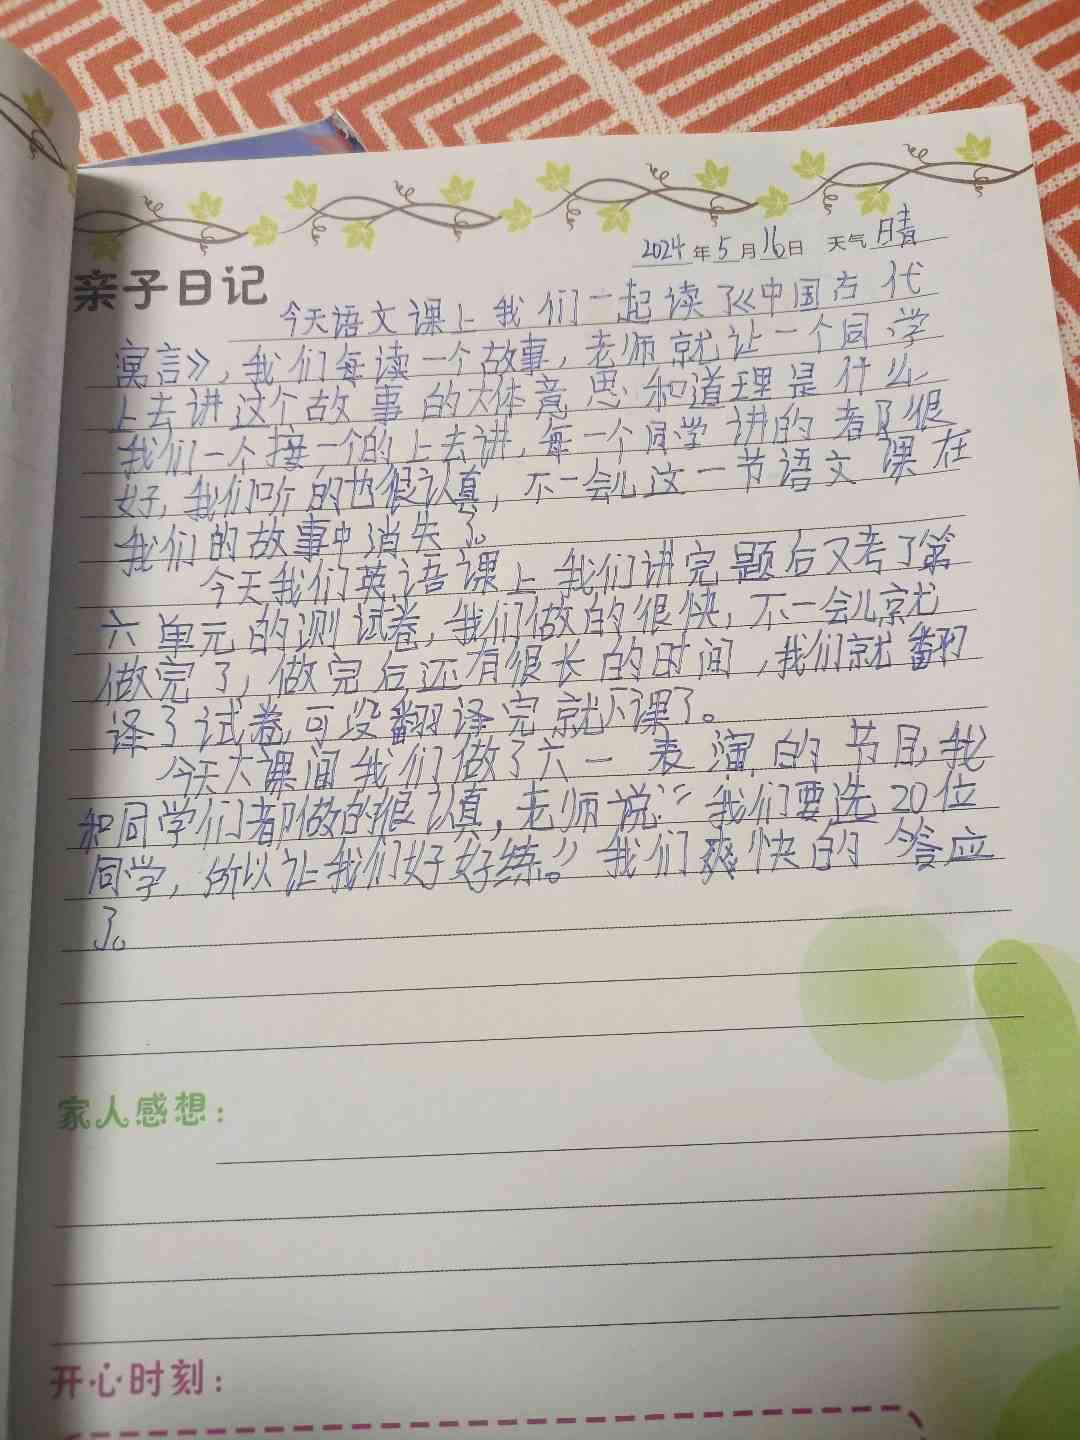 2024年5月16日 天气 晴
亲子日记
今天语文课上我们一起读了《中国古代
寓言》，我们每读一个故事，老师就让一个同学
上去讲这个故事的大体意思和道理是什么
我们一个接一个的上去讲，每一个同学讲的都很
好，我们听的也很认真，不一会儿这一节语文课在
我们的故事中消失了。
今天我们英语课上我们讲完题后又考了第
六单元的测试卷，我们做的很快，不一会儿就
做完了，做完后还有很长的时间，我们就翻
译了试卷，可没翻译完就下课了。
今天大课间我们做了六一表演的节目，我
和同学们都做的很认真，老师说：“我们要选20位
同学，所以让我们好好练。”我们爽快的答应
了。
家人感想：
开心时刻：